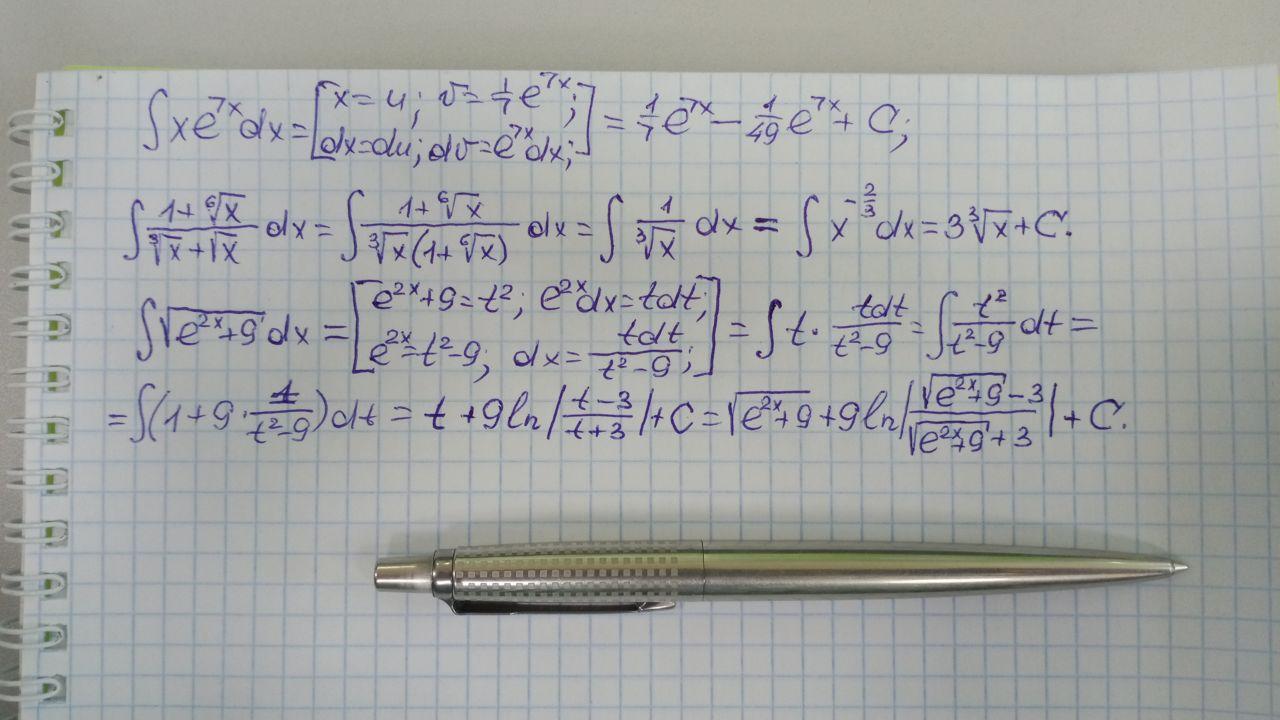 ∫xe^{7x}dx = [x=u; v=\frac{1}{7}e^{7x}; dx=du; dv=e^{7x}dx;] = \frac{1}{7}e^{7x} - \frac{1}{49}e^{7x} + C;
∫\frac{1+\sqrt[6]{x}}{\sqrt[3]{x}+\sqrt{x}}dx = ∫\frac{1+\sqrt[6]{x}}{\sqrt[3]{x}(1+\sqrt[6]{x})}dx = ∫\frac{1}{\sqrt[3]{x}}dx = ∫x^{-\frac{2}{3}}dx = 3\sqrt[3]{x} + C.
∫\sqrt{e^{2x}+9}dx = [e^{2x}+9=t^2; e^{2x}dx=tdt; e^{2x}=t^2-9; dx=\frac{tdt}{t^2-9};] = ∫t·\frac{tdt}{t^2-9} = ∫\frac{t^2}{t^2-9}dt =
= ∫(1+9·\frac{1}{t^2-9})dt = t+9ln|\frac{t-3}{t+3}|+C = \sqrt{e^{2x}+9}+9ln|\frac{\sqrt{e^{2x}+9}-3}{\sqrt{e^{2x}+9}+3}|+C.